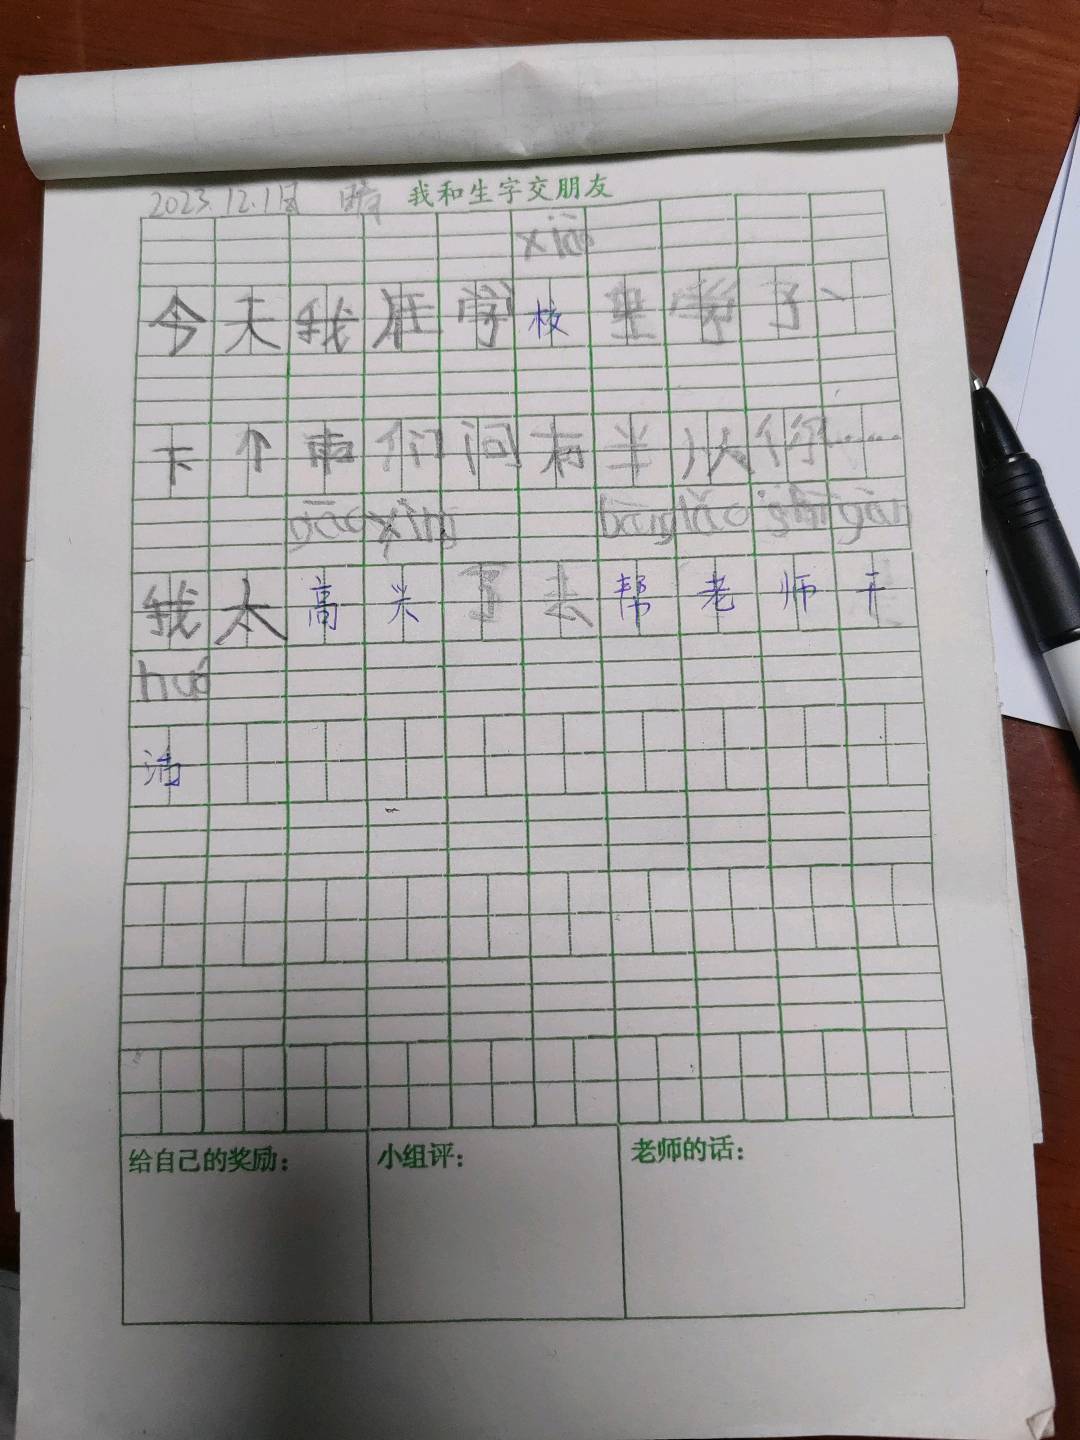 2023.12.1日 晴 我和生字交朋友
xiào
今天我在学校里学了
下个 们问 半从你……
gāo xìng bāng lǎo shī gàn
我太高兴了去帮老师干
huó
活
给自己的奖励： 小组评： 老师的话：